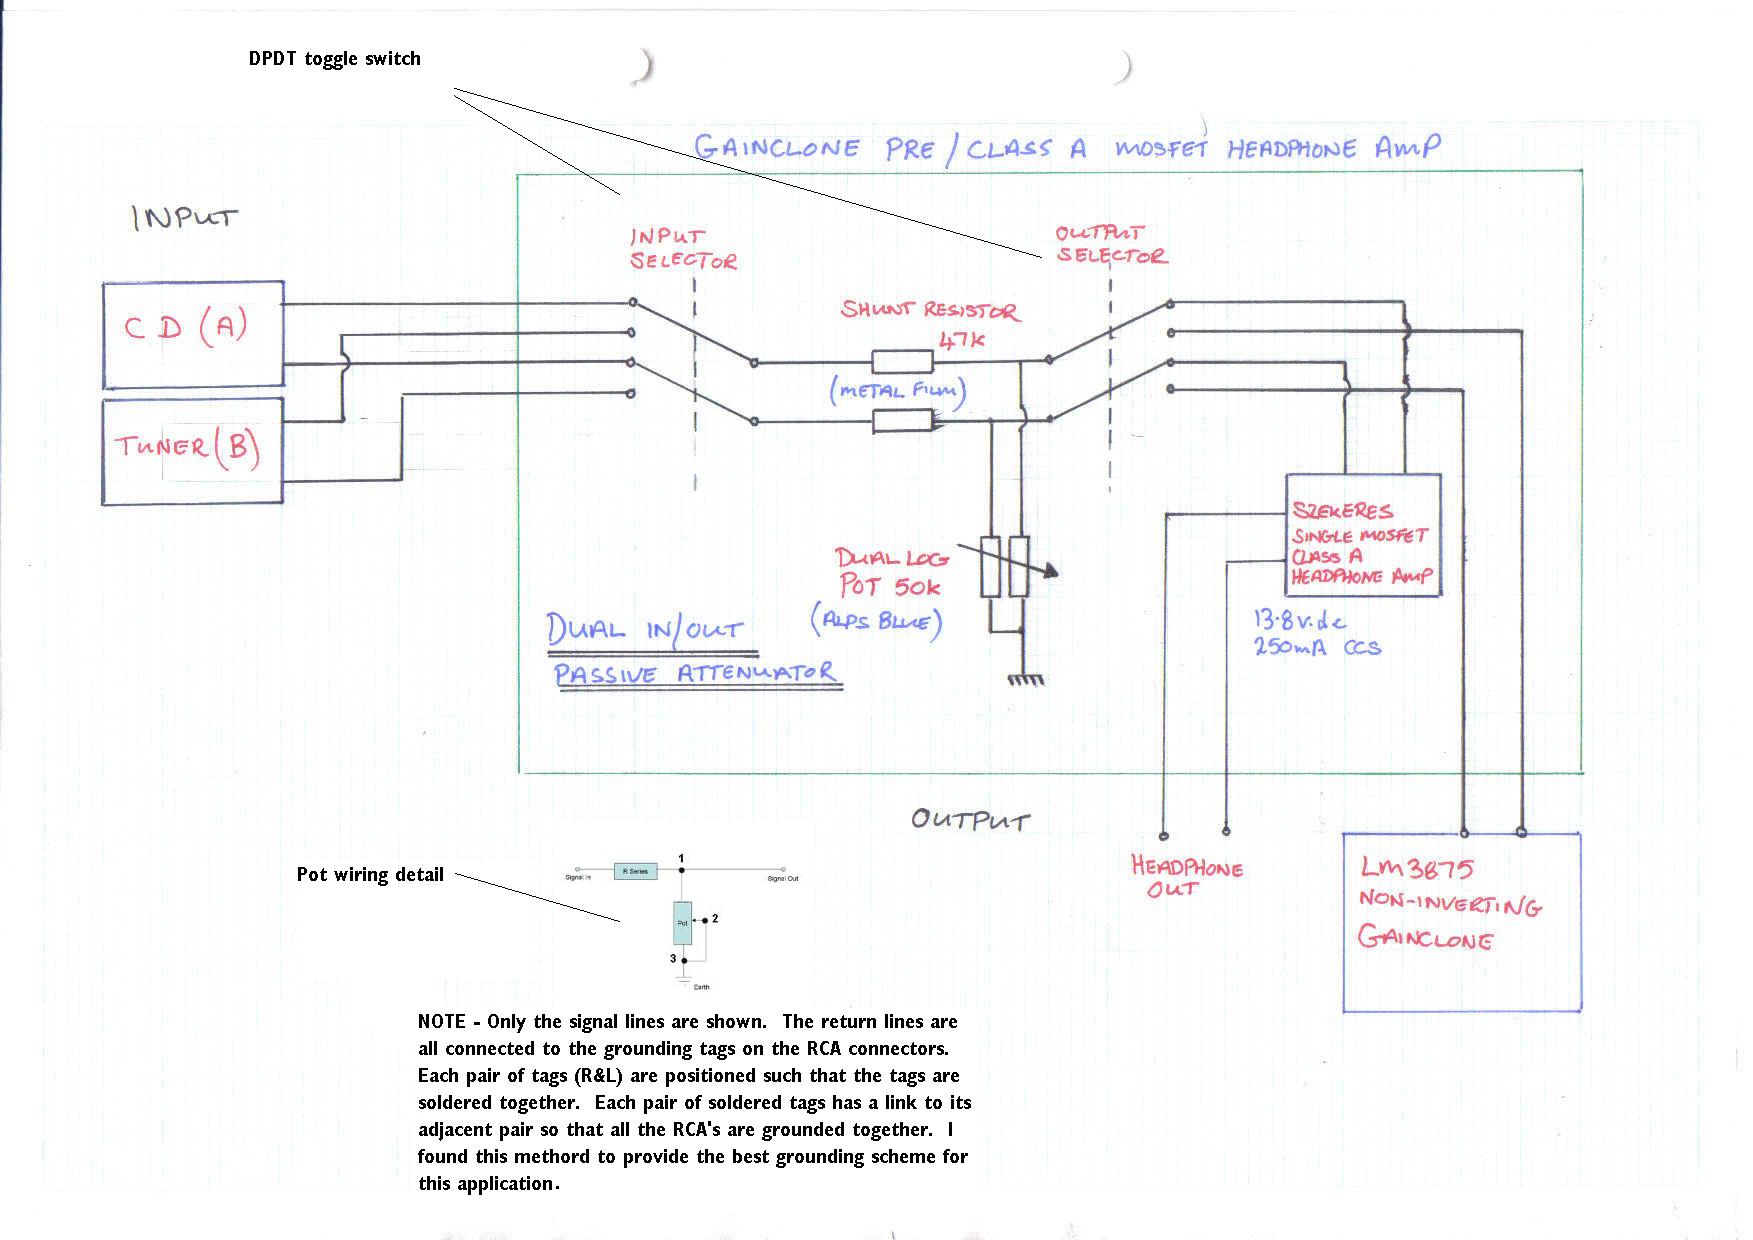 DPDT toggle switch
GAINCLONE PRE / CLASS A MOSFET HEADPHONE AMP
INPUT
INPUT
SELECTOR
OUTPUT
SELECTOR
CD (A)
SHUNT RESISTOR
47K
(METAL FILM)
TUNER (B)
DUAL LOG
POT 50K
(ALPS BLUE)
SZEKERES
SINGLE MOSFET
CLASS A
HEADPHONE AMP
13.8v.dc
250mA CCS
DUAL IN/OUT
PASSIVE ATTENUATOR
OUTPUT
HEADPHONE
OUT
LM3875
NON-INVERTING
GAINCLONE
Pot wiring detail
1
Signal In
R Series
Signal Out
Pot
2
3
Earth
NOTE - Only the signal lines are shown.  The return lines are
all connected to the grounding tags on the RCA connectors.
Each pair of tags (R&L) are positioned such that the tags are
soldered together.  Each pair of soldered tags has a link to its
adjacent pair so that all the RCA's are grounded together.  I
found this methord to provide the best grounding scheme for
this application.